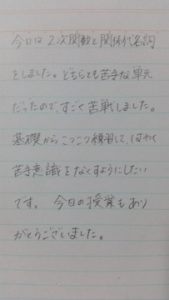 今日は2次関数と関係代名詞
をしました。どちらも苦手な単元
だったので、すごく苦戦しました。
基礎からこつこつ練習して、はやく
苦手意識をなくすようにしたい
です。 今日の授業もあり
がとうございました。